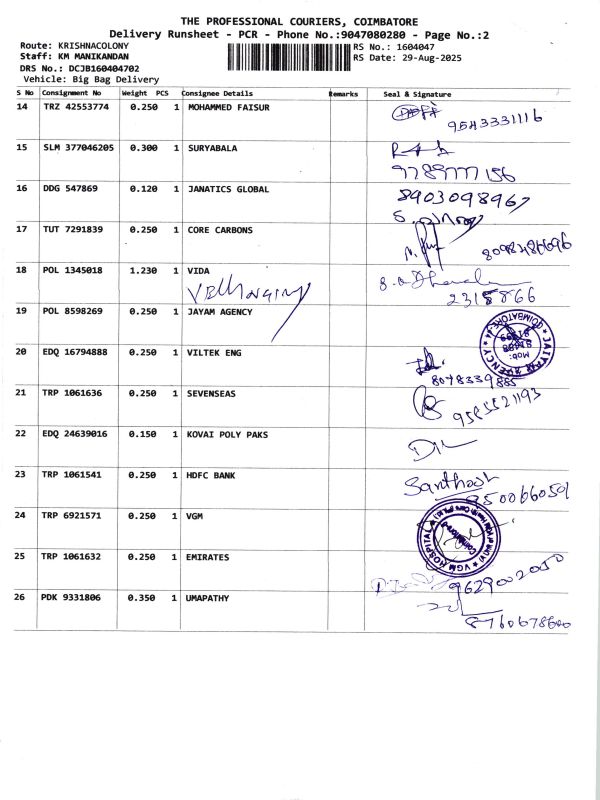 THE PROFESSIONAL COURIERS, COIMBATORE
Delivery Runsheet - PCR - Phone No.:9047080280 - Page No.:2
Route: KRISHNACOLONY
Staff: KM MANIKANDAN
DRS No.: DCJB160404702
Vehicle: Big Bag Delivery
RS No.: 1604047
RS Date: 29-Aug-2025
S No Consignment No Weight PCS Consignee Details Remarks Seal & Signature
14 TRZ 42553774 0.250 1 MOHAMMED FAISUR
9543331116
15 SLM 377046205 0.300 1 SURYABALA
16 DDG 547869 0.120 1 JANATICS GLOBAL
8903098967
17 TUT 7291839 0.250 1 CORE CARBONS
18 POL 1345018 1.230 1 VIDA
2315866
19 POL 8598269 0.250 1 JAYAM AGENCY
20 EDQ 16794888 0.250 1 VILTEK ENG
8078339885
21 TRP 1061636 0.250 1 SEVENSEAS
22 EDQ 24639016 0.150 1 KOVAI POLY PAKS
23 TRP 1061541 0.250 1 HDFC BANK
Santhosh
9500660501
24 TRP 6921571 0.250 1 VGM
VGM HOSPITAL
25 TRP 1061632 0.250 1 EMIRATES
9629002050
26 PDK 9331806 0.350 1 UMAPATHY
8760678600